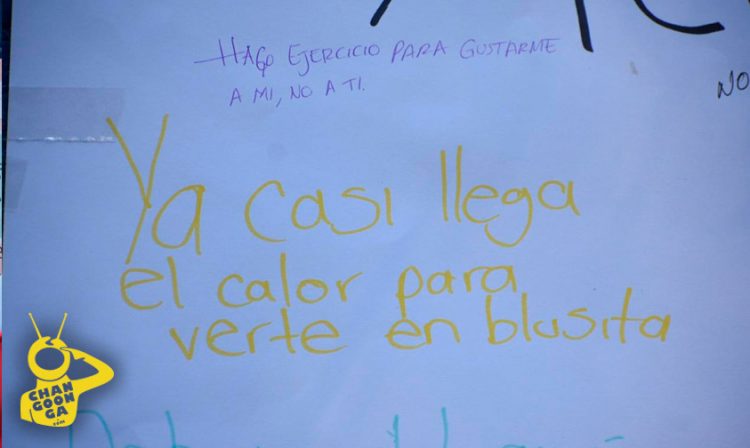 HAGO EJERCICIO PARA GUSTARME
A MI, NO A TI.
NO
Ya casi llega
el calor para
verte en blusita
CHAN
GOON
GA
.com